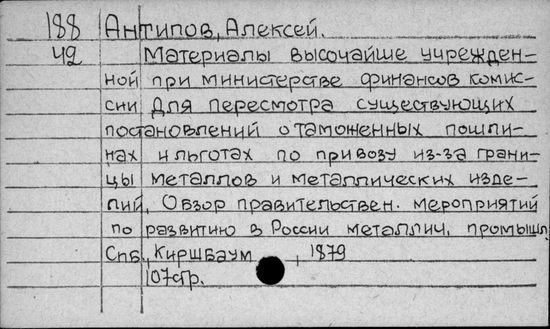 188 Антипов, Алексей.
42 Материалы высочайше учрежден-
ной при министерстве финансов комис-
сии для пересмотра существующих
постановлений о таможенных пошли-
нах и льготах по привозу из-за грани-
цы металлов и металлических изде-
лий. Обзор правительствен. мероприятий
по развитию в России металлич. промышл.
Спб., Киршбаум, 1879
107стр.